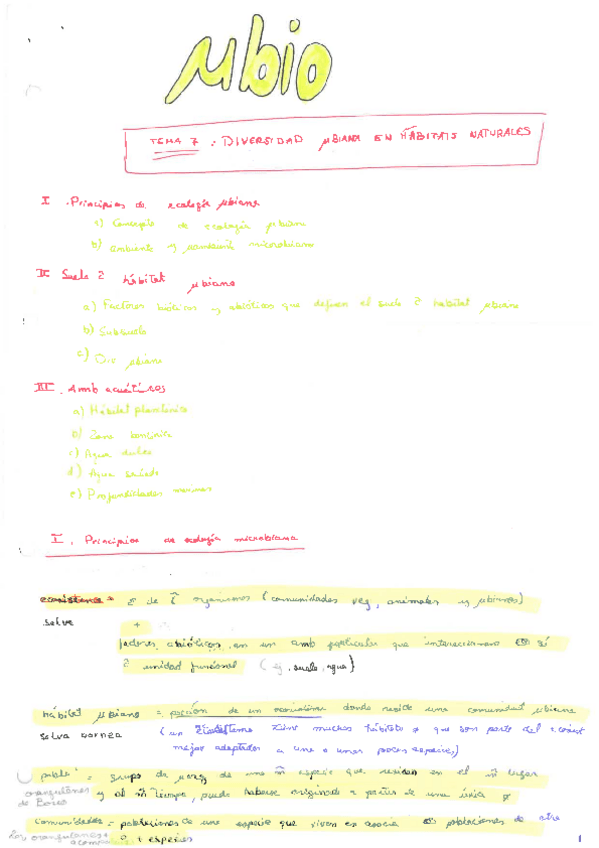 μbio
TEMA 7 : DIVERSIDAD μBIANA EN HÁBITATS NATURALES
I .Principios de ecología μbiana
a) Concepto de ecología μbiana
b) ambiente y microbiano
II Suelo hábitat μbiano
a) Factores bióticos y abióticos que definen el suelo hábitat μbiano
b) Subsuelo
c) Div μbiana
III. Amb acuáticos
a) Hábitat planctónico
b) Zona
c) Agua dulce
d) Agua salada
e) Profundidades marinas
I. Principios de ecología microbiana
ecosistema = de organismos (comunidades veg, animales y μbianas)
selva +
factores abióticos en un amb particular que interaccionan sí
unidad funcional (ej. suelo, agua)
hábitat μbiano = porción de un ecosistema donde reside una comunidad μbiana
selva (un ecosistema tiene muchos hábitats que son parte del
mejor adaptados a una o unas pocas especies)
poblac = grupo de de una especie que residen en el lugar
orangutanes y al tiempo, puede haberse originado a partir de una única
de Boreo
Comunidades = poblaciones de una especie que viven en poblaciones de otra
los orangutanes + o + especies
1